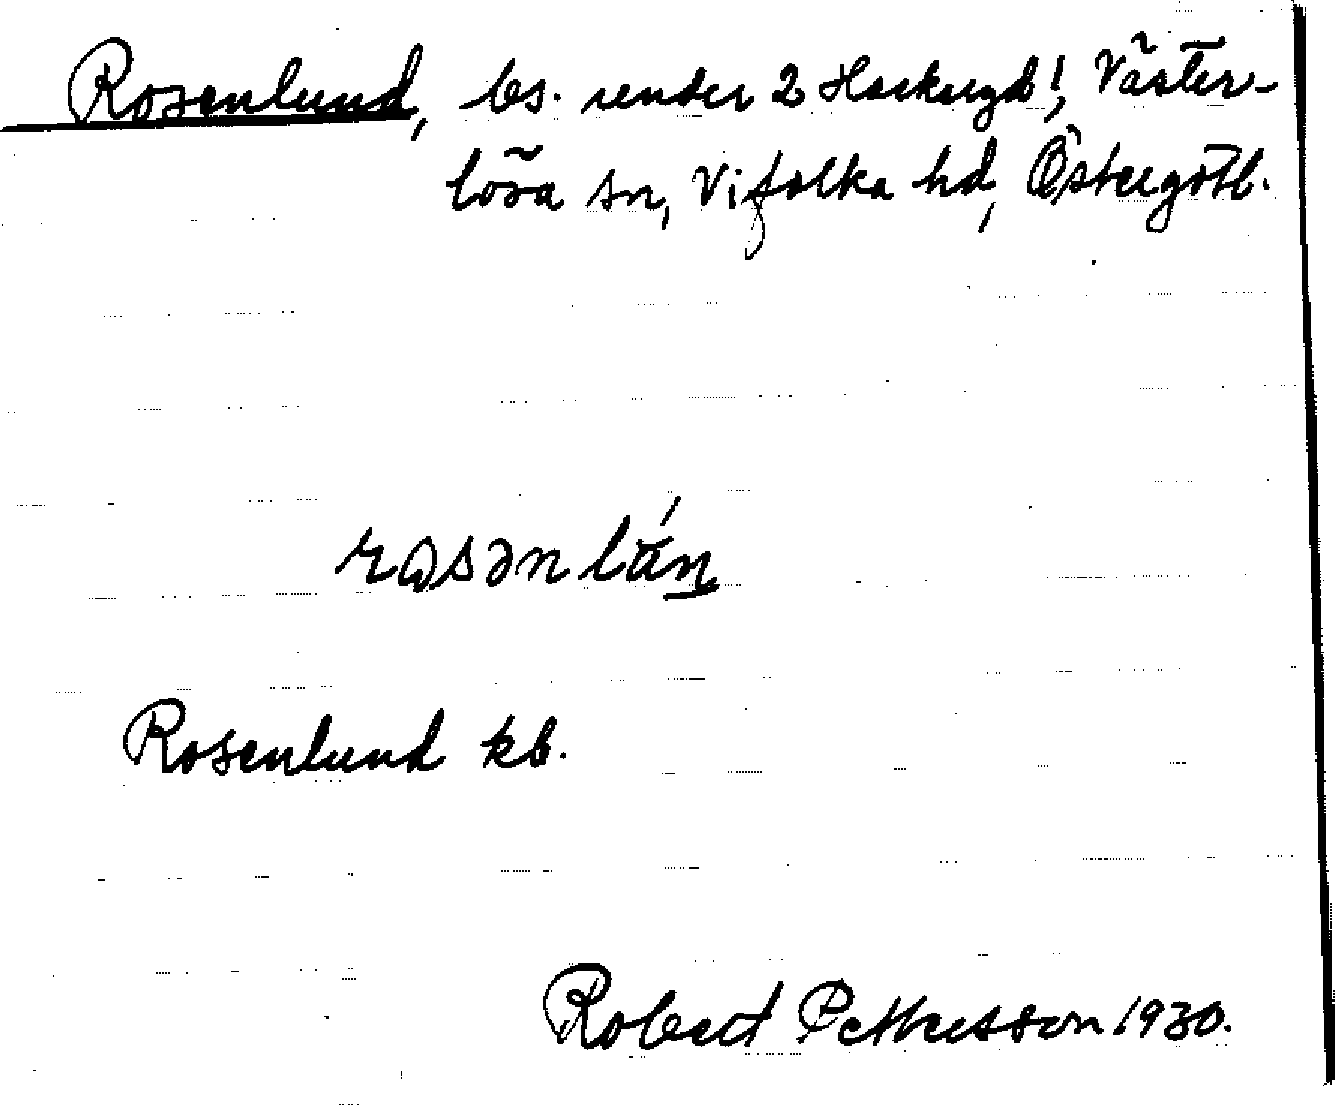 Rosenlund, bs. under 2 Hackeryd!, Väster-
lösa sn, Vifolka hd, Östergötl.
rosənlán
Rosenlund kb.
Robert Pettersson 1930.